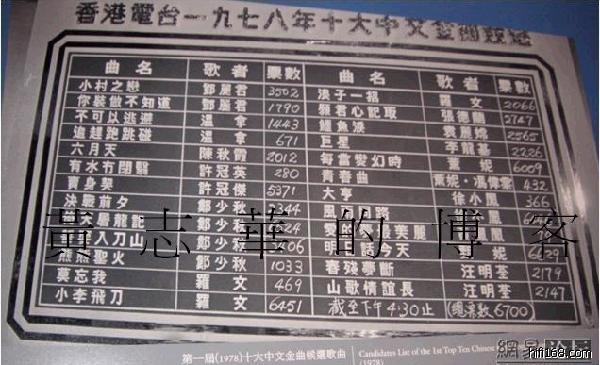 香港電台一九七八年十大中文金曲競選
曲名 歌者 票數 曲名 歌者 票數
小村之戀 鄧麗君 3502 浪子一招 羅文 2066
你裝做不知道 鄧麗君 1790 願君心記取 張德蘭 2747
不可以逃避 溫拿 1443 鱷魚淚 袁麗嫦 2565
追趕跑跳碰 溫拿 671 巨星 李龍基 2226
六月天 陳秋霞 2012 每當變幻時 薰妮 6009
有水冇閉翳 許冠英 280 青春曲 薰妮·馮偉棠 432
賣身契 許冠傑 5371 大亨 徐小鳳 366
決戰前夕 鄭少秋 2344 風
屠龍記 鄭少秋 愛的 美麗
入刀山 鄭少秋 明 話今天 6629
熊熊聖火 鄭少秋 1033 春殘夢斷 汪明荃 2179
莫忘我 羅文 469 山歌情誼長 汪明荃 2147
小李飛刀 羅文 6451 截至下午4.30止 (總票數6700)
黃志華的博客
第一屆(1978)十大中文金曲候選歌曲
Candidates List of the 1st Top Ten Chinese
(1978)
hifi168.com